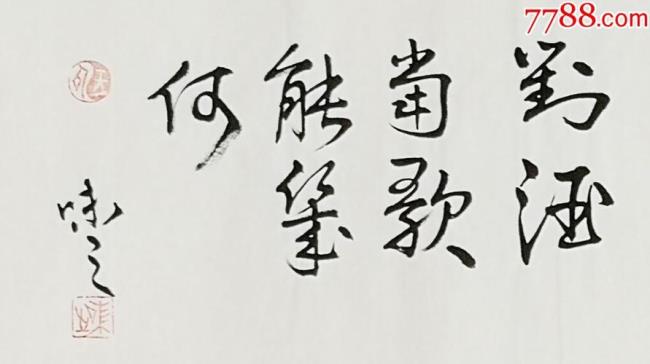 7788.com
對酒
當歌
能幾
何
之